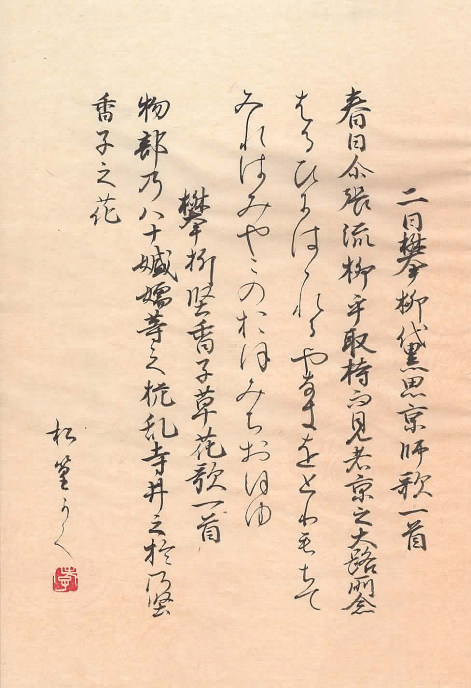 二日攀柳黛思京師歌一首
春日尓張流柳乎取持而見者京之大路所念
はるひにはゝれるやなきをとりもちて
みれはみやこのおほみちおほゆ
攀折堅香子草花歌一首
物部乃八十𡢳嬬等之挹乱寺井之於乃堅
香子之花
松篁かく